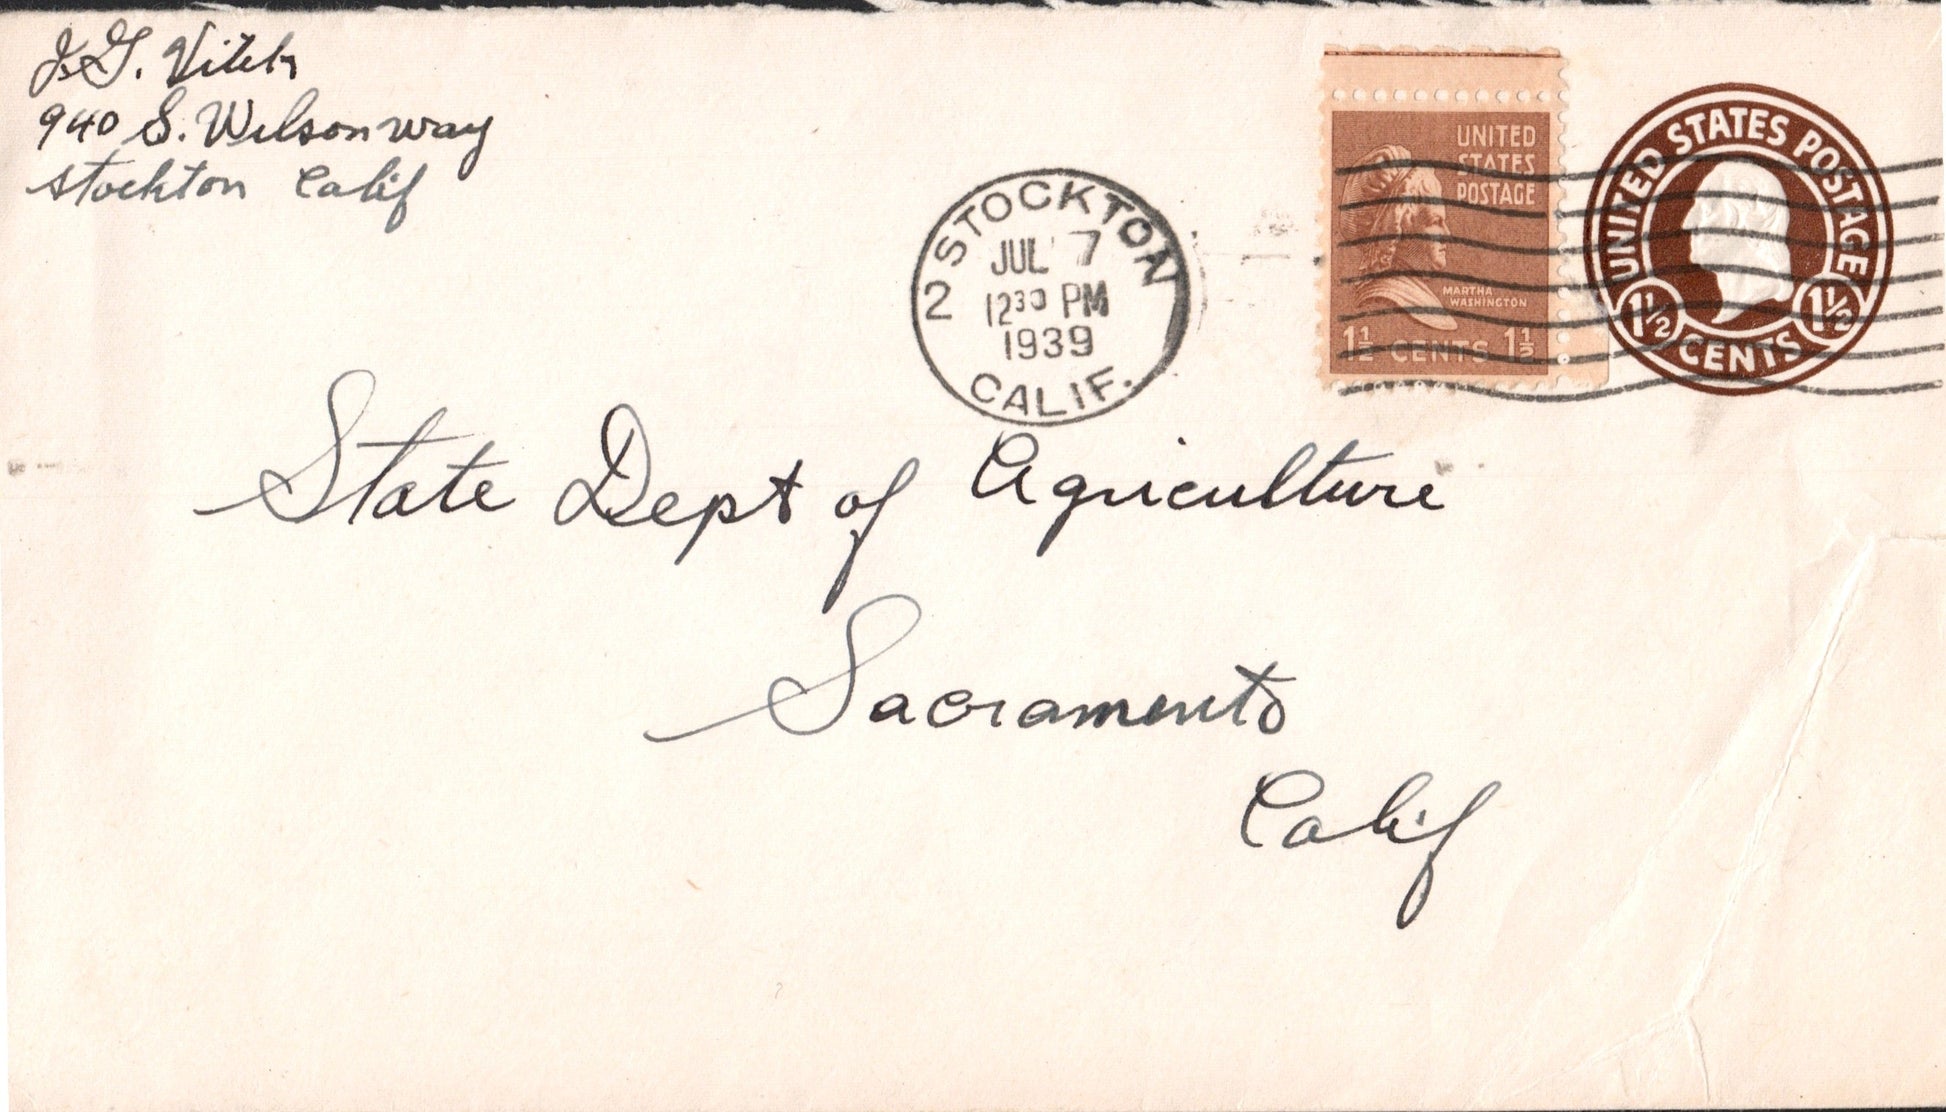 J. G.
940 S. Wilson way
Stockton Calif
2 STOCKTON
JUL 7
12 30 PM
1939
CALIF.
UNITED
STATES
POSTAGE
MARTHA
WASHINGTON
1½ CENTS 1½
UNITED STATES POSTAGE
1½ 1½
CENTS
State Dept of Agriculture
Sacramento
Calif